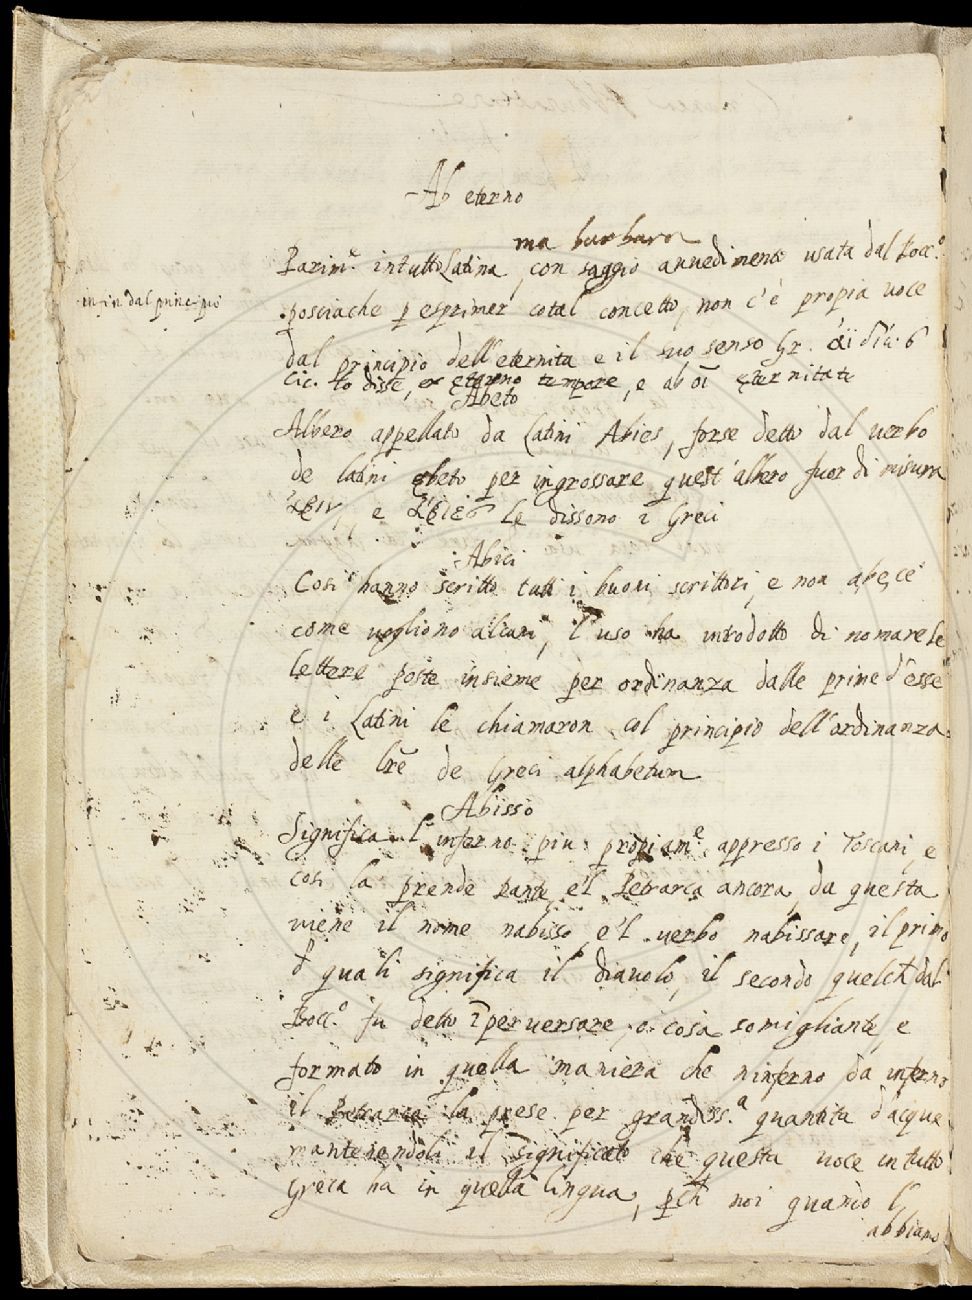 Ab eterno
ma barbara
Parimᵉ. in tutto Latina, con saggio avvedimento usata dal Bocc.º
in fin dal principio
posciache p esprimer cotal concetto, non c'è propia voce
dal principio dell'eternita e il suo senso Gr.
Cic. lo disse, ex eterno tempore, e ab oi eternitate
Abeto
Albero appellato da Latini Abies, forse detto dal verbo
de latini abeto per ingrossare quest'albero fuor di misura
e le dissono i Greci
Abici
Cosi hanno scritto tutti i buoni scrittori, e non abece
come vogliono alcuni, l'uso ha introdotto di nomare le
lettere poste insieme per ordinanza dalle prime d'esse
e i Latini le chiamaron col principio dell'ordinanza
delle lrẽ de Greci alphabetum
Abisso
Significa l'inferno piu propiamᵉ. appresso i Toscani, e
cosi la prende Dante, e'l Petrarca ancora, da questa
viene il nome nabisso, e'l verbo nabissare, il primo
quali significa il diavolo, il secondo quelch dal
Bocc.º fu detto ĩperversare, o cosa somigliante, e
formato in quella maniera che ninferno da inferno
il Petrarca la prese per grandiss.ª quantita d'acque
mantenendoli il significato che questa voce in tutto
Greca ha in quella lingua, pch noi quando l'
abbiamo